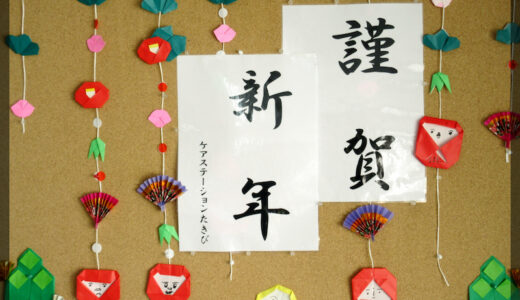 謹賀
新年
ケアステーションたきび